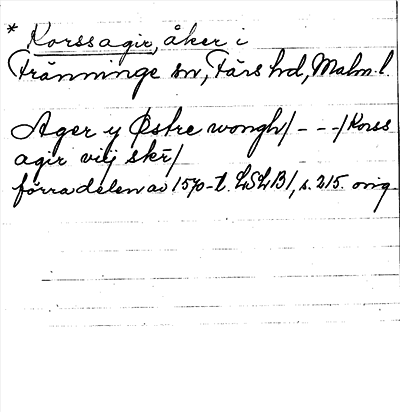 * Korssagir, åker i
Tränninge sn, Färs hd, Malm. l.
Ager y Østre wongh/ - - -/Korss
agir viij skr/
förra delen av 1570-t. LSLB1, s. 215. orig